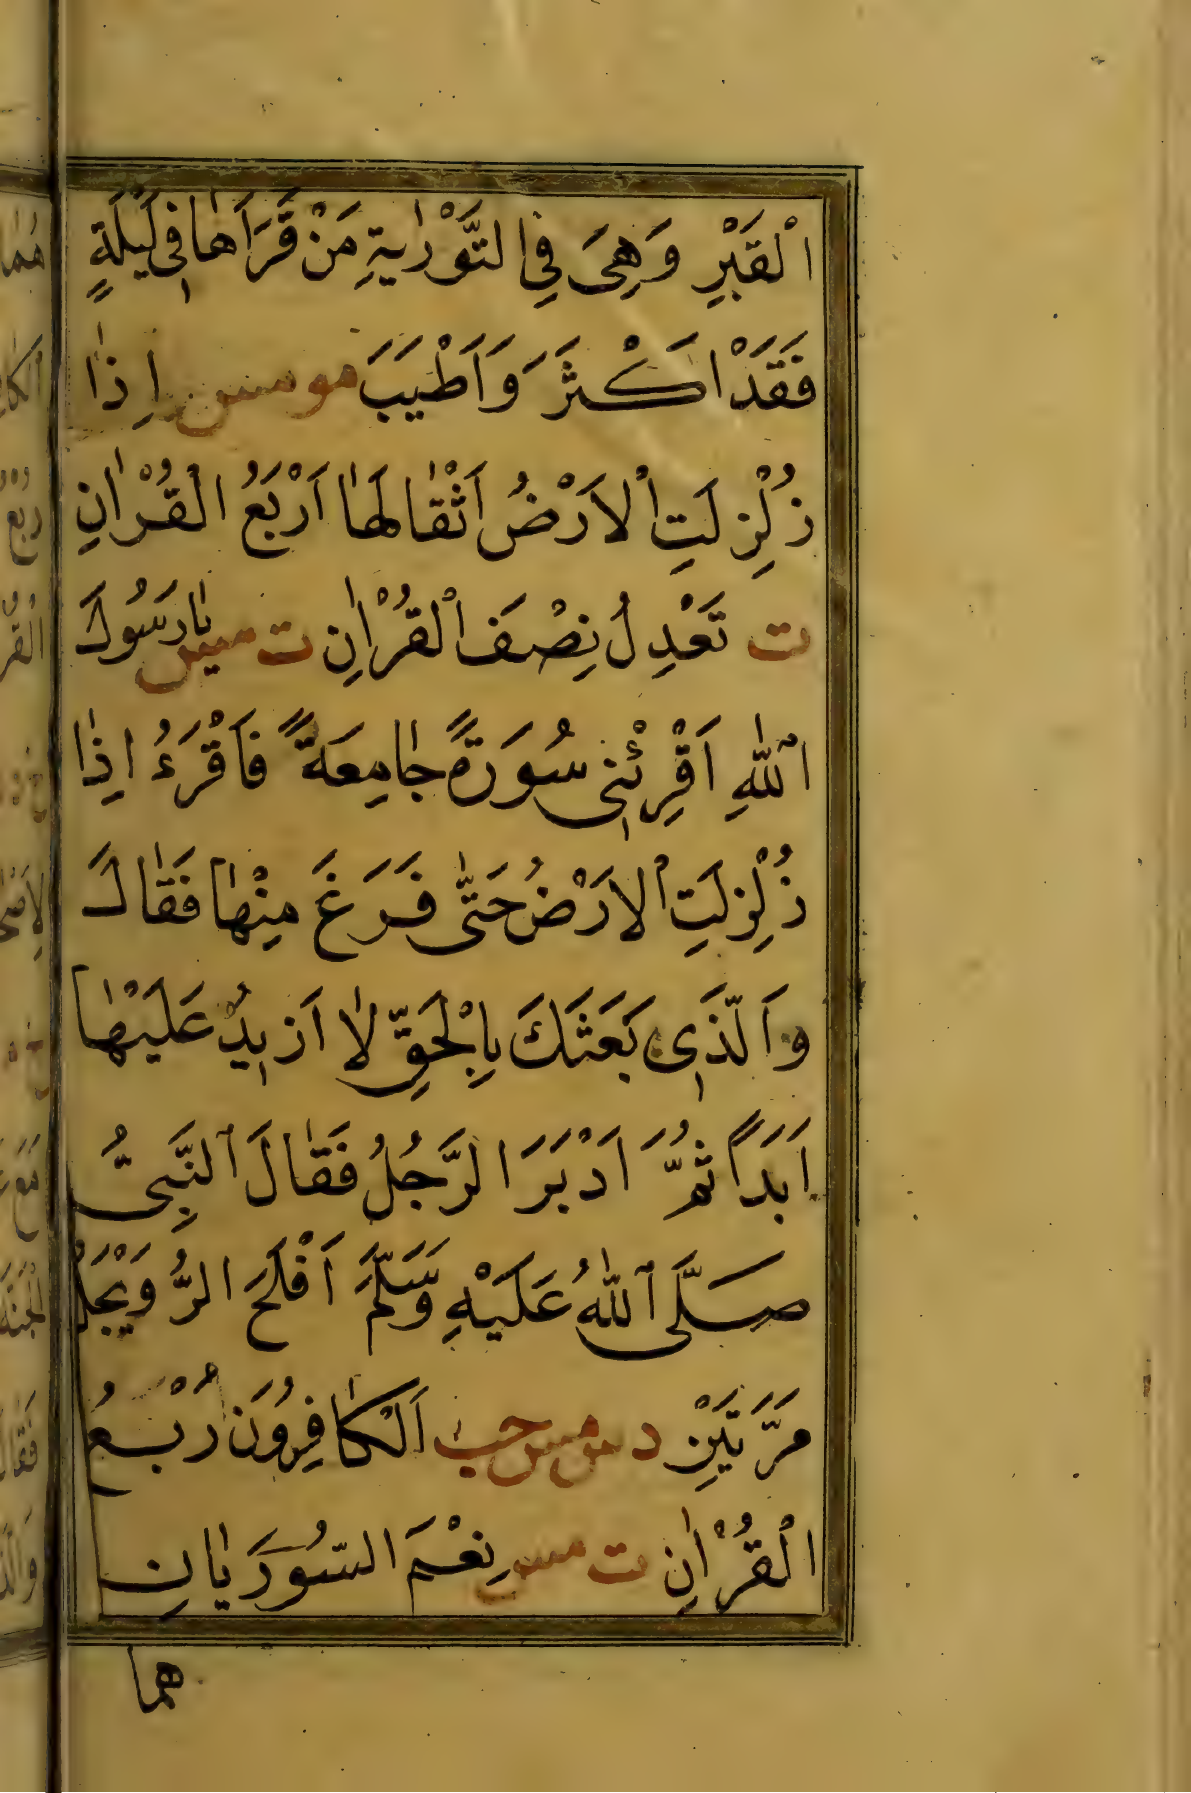 اْلقَبْرِ وَهِىَ فِى التَّوْرٰيةِ مَنْ قَرَاَهٰا فِى لَيْلَةٍ
فَقَدْ اَكْثَرَ وَاَطْيَبَ مو مس اِذٰا
زُلْزِلَتِ اْلاَرْضُ اَثْقٰالَهٰا اَرْبَعُ الْقُرْاٰنِ
ت تَعْدِلُ نِصْفَ الْقُرْاٰنِ ت مس يٰا رَسُولَ
اللّٰهِ اَقْرِئْنِى سُورَةً جٰامِعَةً فَاَقْرَءُ اِذٰا
زُلْزِلَتِ اْلاَرْضُ حَتّٰى فَرَغَ مِنْهٰا فَقٰالَ
وَالَّذِى بَعَثَكَ بِالْحَقِّ لٰا اَزِيدُ عَلَيْهٰا
اَبَدًا ثُمَّ اَدْبَرَ الرَّجُلُ فَقٰالَ النَّبِىُّ
صَلَّى اللّٰهُ عَلَيْهِ وَسَلَّمَ اَفْلَحَ الرُّوَيْجِلُ
مَرَّتَيْنِ د س مس حب اَلْكٰافِرُونَ رُبْعُ
الْقُرْاٰنِ ت مس نِعْمَ السُّورَتٰانِ
هما